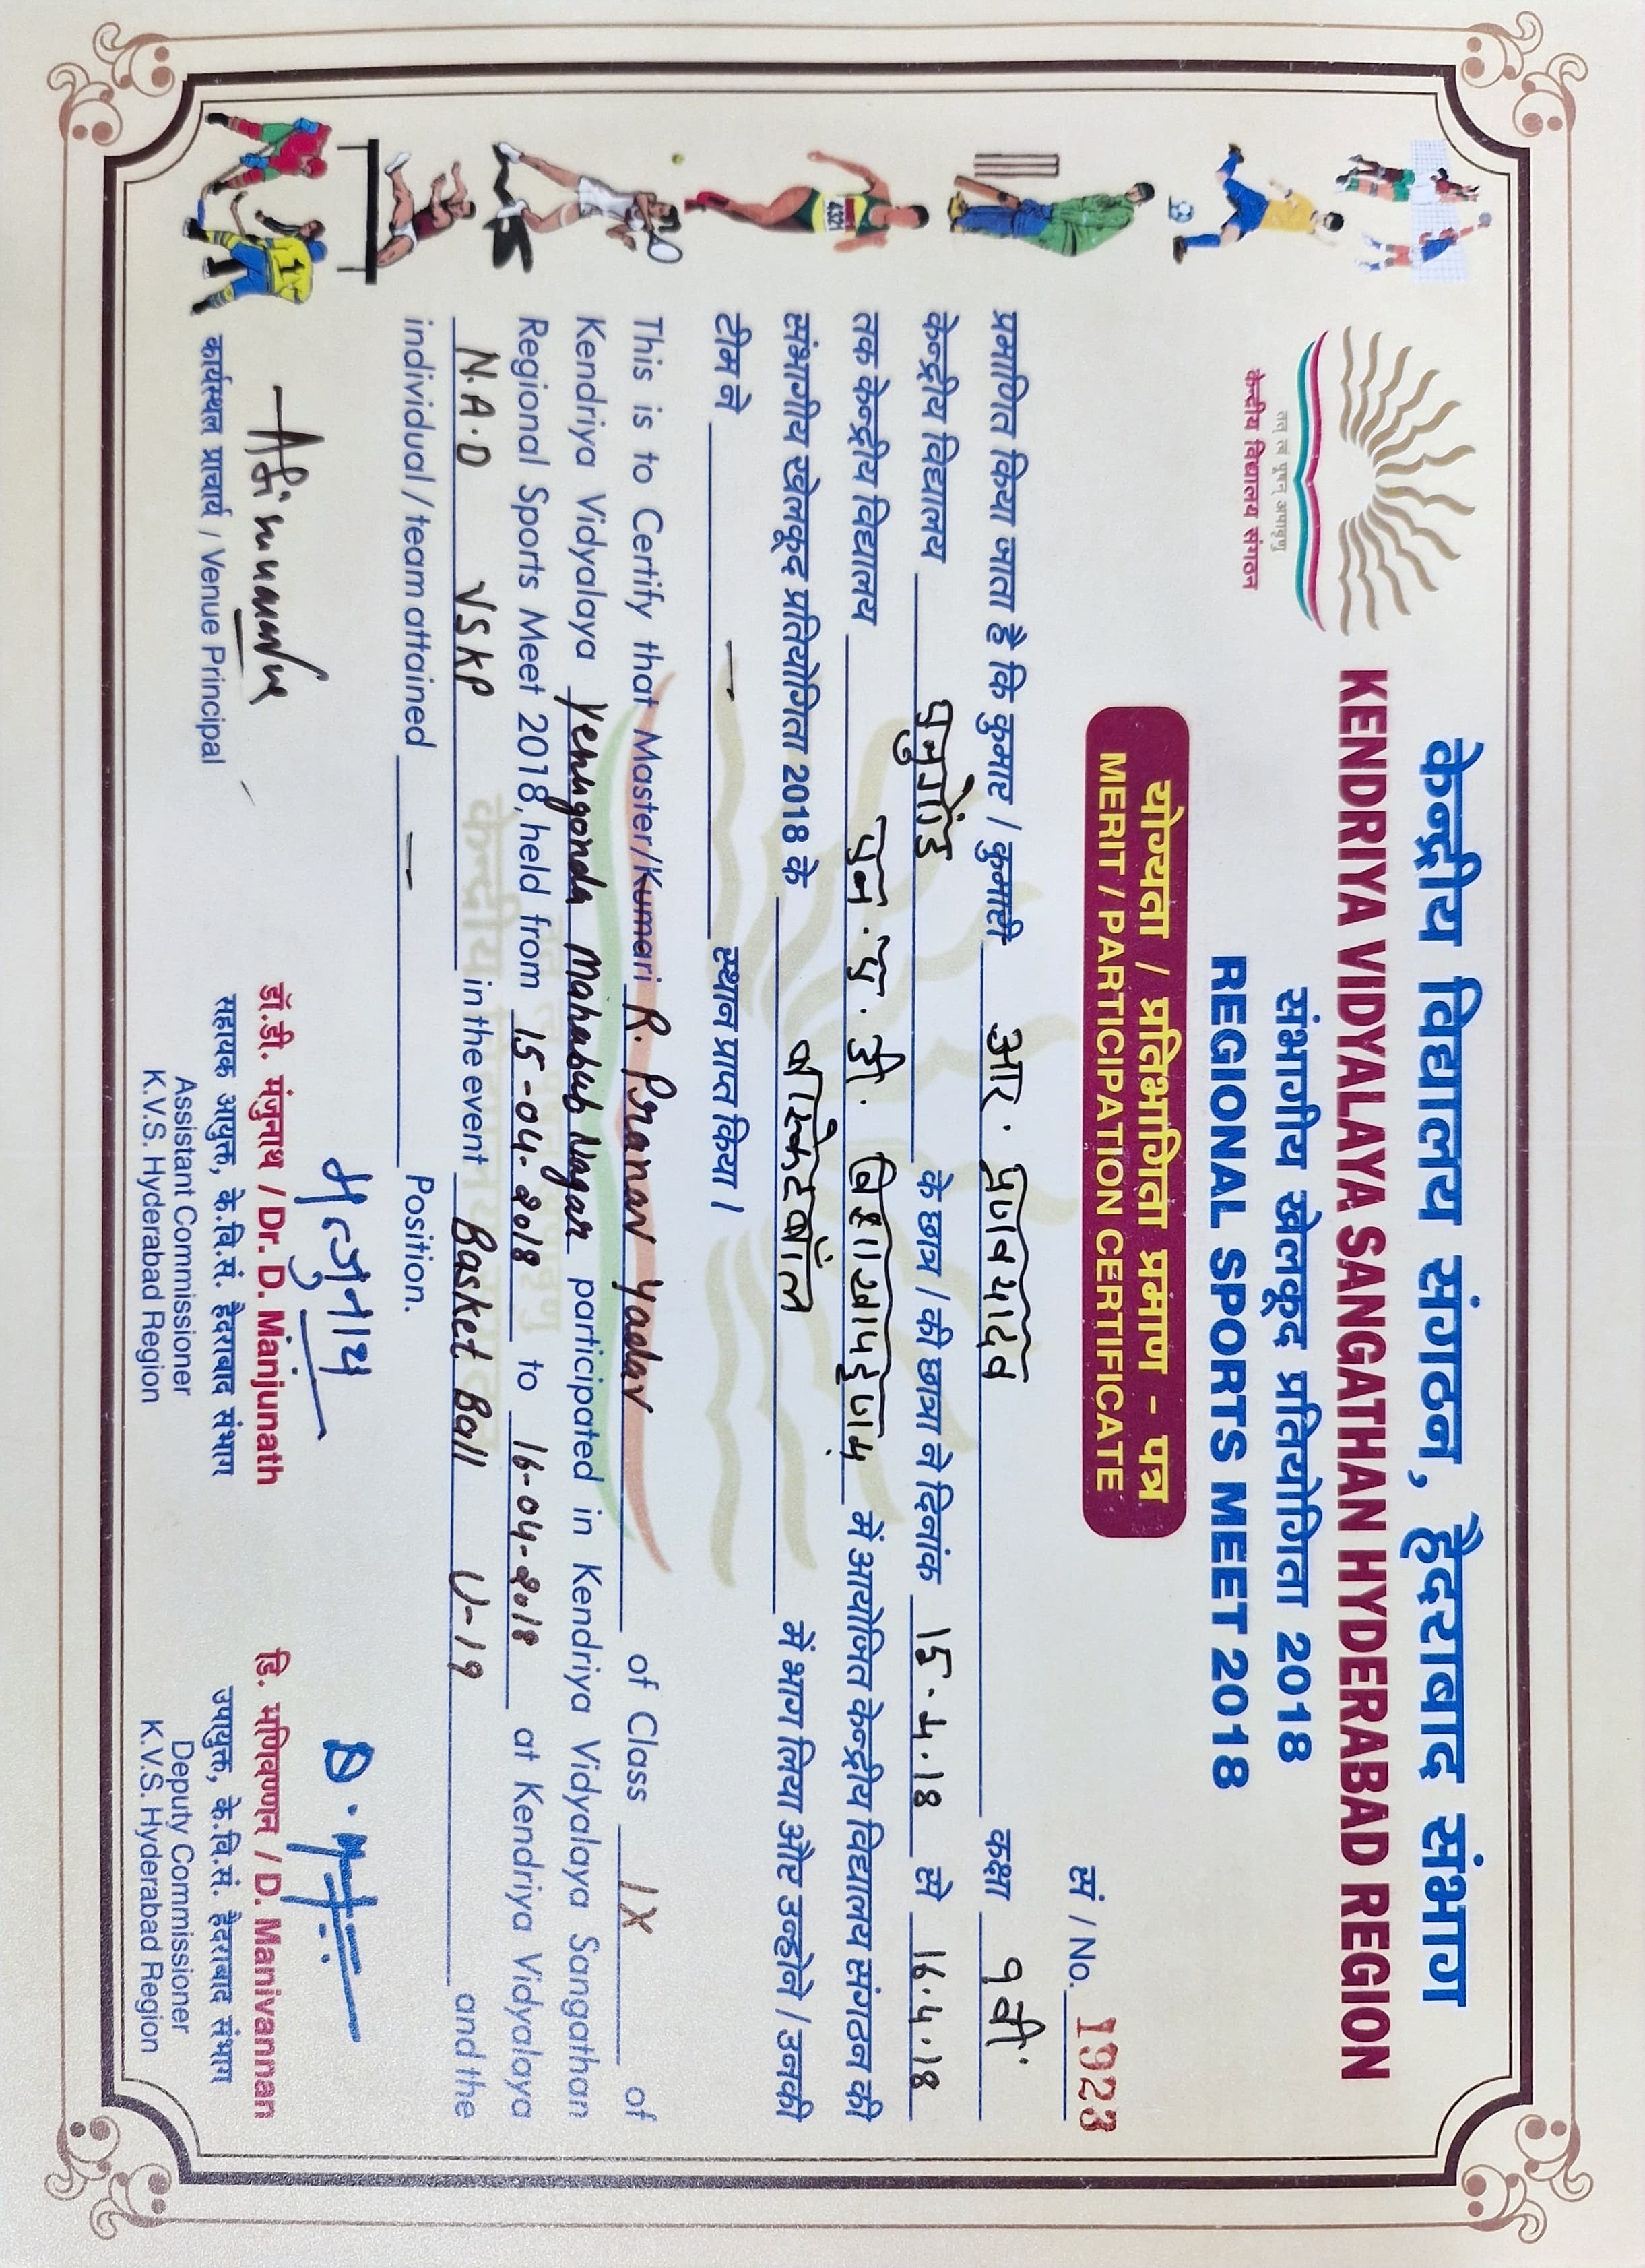 केन्द्रीय विद्यालय संगठन, हैदराबाद संभाग
KENDRIYA VIDYALAYA SANGATHAN HYDERABAD REGION
संभागीय खेलकूद प्रतियोगिता 2018
REGIONAL SPORTS MEET 2018
तत् त्वं पूषन् अपावृणु
केन्द्रीय विद्यालय संगठन
योग्यता / प्रतिभागिता प्रमाण - पत्र
MERIT / PARTICIPATION CERTIFICATE
सं / No. 1923
प्रमाणित किया जाता है कि कुमार / कुमारी आर. प्रणवयादव कक्षा 9वीं
केन्द्रीय विद्यालय एनुगोंड के छात्र / की छात्रा ने दिनांक 15.4.18 से 16.4.18
तक केन्द्रीय विद्यालय एन.ए.डी. विशाखापट्टणम् में आयोजित केन्द्रीय विद्यालय संगठन की
संभागीय खेलकूद प्रतियोगिता 2018 के बास्केटबॉल में भाग लिया और उन्होने / उनकी
टीम ने — स्थान प्राप्त किया ।
This is to Certify that Master/Kumari R. Pranav Yadav of Class IX of
Kendriya Vidyalaya Yenugonda Mahabub Nagar participated in Kendriya Vidyalaya Sangathan
Regional Sports Meet 2018, held from 15-04-2018 to 16-04-2018 at Kendriya Vidyalaya
N.A.D VSKP in the event Basket Ball U-19 and the
individual / team attained — Position.
मन्जुनाथ
कार्यस्थल प्राचार्य / Venue Principal
डॉ.डी. मंजुनाथ / Dr. D. Manjunath
सहायक आयुक्त, के.वि.सं. हैदराबाद संभाग
Assistant Commissioner
K.V.S. Hyderabad Region
डि. मणिवण्णन / D. Manivannan
उपायुक्त, के.वि.सं. हैदराबाद संभाग
Deputy Commissioner
K.V.S. Hyderabad Region
4321
1